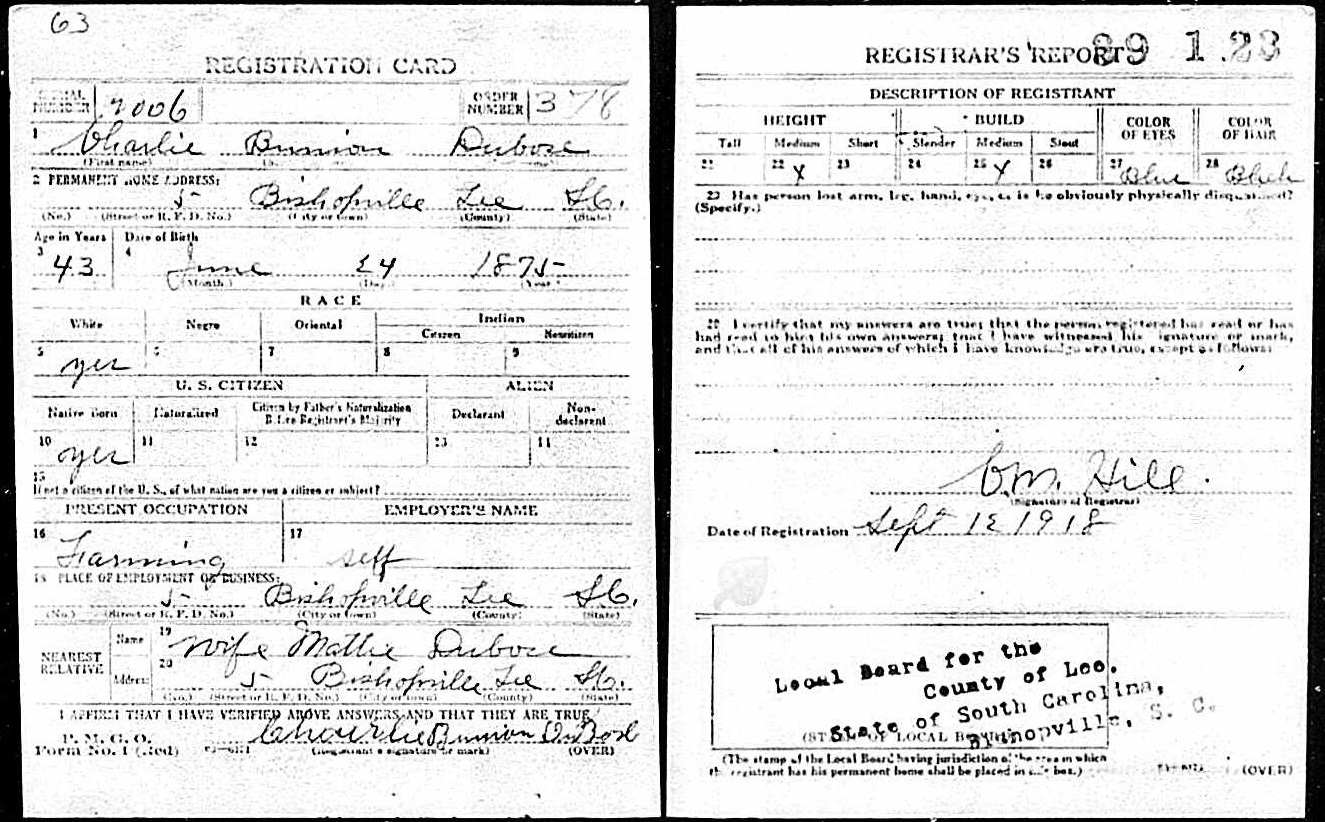 63
REGISTRATION CARD
SERIAL NUMBER 2006 ORDER NUMBER 378
1 Charlie Bunion Dubose
(First name)
2 PERMANENT HOME ADDRESS:
5 Bishopville Lee S.C.
(No.) (Street or R. F. D. No.) (City or town) (County) (State)
Age in Years Date of Birth
3 43 4 June 24 1875
(Month.) (Day.) (Year.)
RACE
White Negro Oriental Indian
Citizen Noncitizen
5 yes 6 7 8 9
U. S. CITIZEN ALIEN
Native Born Naturalized Citizen by Father's Naturalization Before Registrant's Majority Declarant Non-declarant
10 yes 11 12 13 14
15
If not a citizen of the U. S., of what nation are you a citizen or subject?
PRESENT OCCUPATION EMPLOYER'S NAME
16 Farming 17 self
18 PLACE OF EMPLOYMENT OR BUSINESS:
5 Bishopville Lee S.C.
(No.) (Street or R. F. D. No.) (City or town) (County) (State)
NEAREST RELATIVE
Name 19 Wife Mattie Dubose
Address 20 5 Bishopville Lee S.C.
(No.) (Street or R. F. D. No.) (City or town) (County) (State)
I AFFIRM THAT I HAVE VERIFIED ABOVE ANSWERS AND THAT THEY ARE TRUE
P. M. G. O.
Form No. 1 (Red) Bunion DuBose
(Registrant's signature or mark) (OVER)
REGISTRAR'S REPORT 39 1 23
DESCRIPTION OF REGISTRANT
HEIGHT BUILD COLOR OF EYES COLOR OF HAIR
Tall Medium Short Slender Medium Stout
21 22 X 23 24 25 X 26 27 Blue 28 Black
29 Has person lost arm, leg, hand, eye, or is he obviously physically disqualified?
(Specify.)
30 I certify that my answers are true; that the person registered has read or has
had read to him his own answers; that I have witnessed his signature or mark,
and that all of his answers of which I have knowledge are true, except as follows:
C. M. Hill.
(Signature of Registrar)
Date of Registration Sept 12 1918
Local Board for the
County of Lee.
State of South Carolina,
Bishopville, S. C.
(STAMP OF LOCAL BOARD)
(The stamp of the Local Board having jurisdiction of the area in which
the registrant has his permanent home shall be placed in this box.)
(OVER)